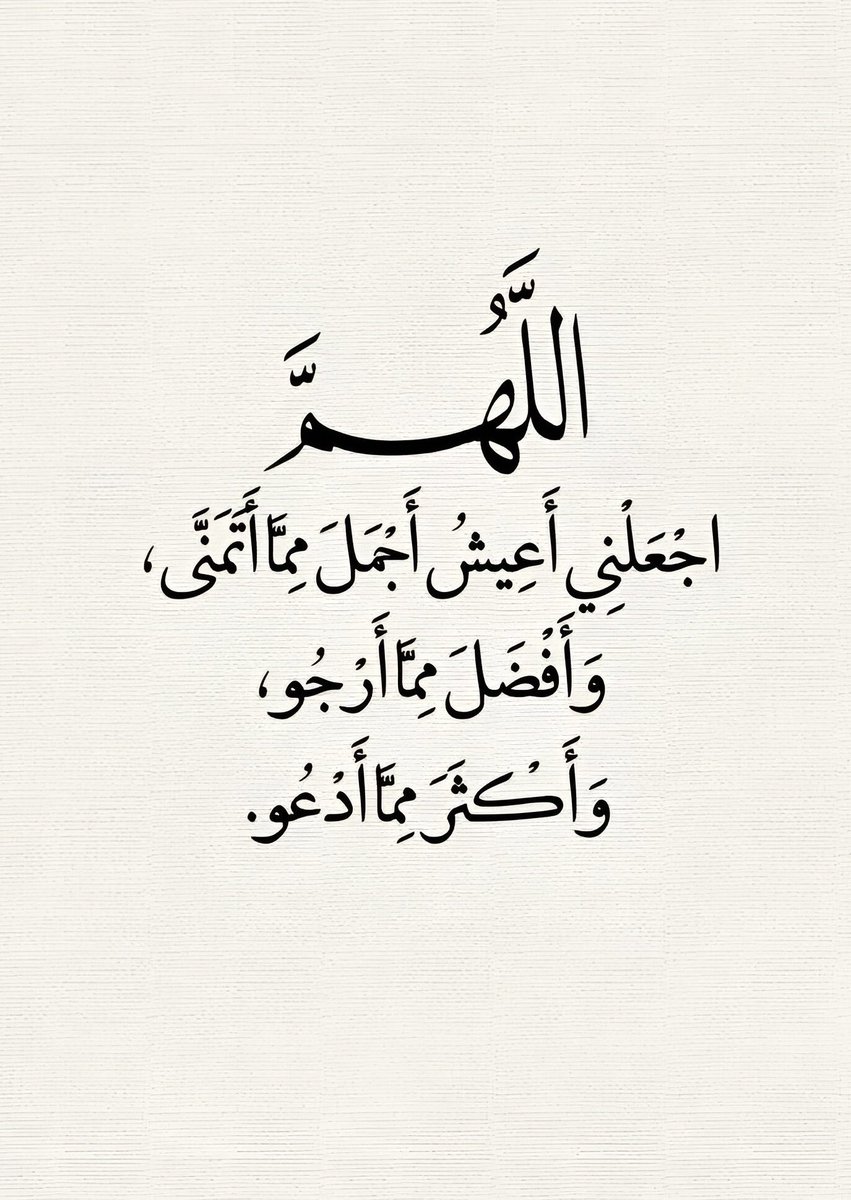 اللَّهُمَّ
اجْعَلْنِي أَعِيشُ أَجْمَلَ مِمَّا أَتَمَنَّى،
وَأَفْضَلَ مِمَّا أَرْجُو،
وَأَكْثَرَ مِمَّا أَدْعُو.